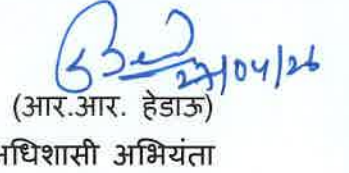 27/04/26
(आर.आर. हेडाऊ)
अधिशासी अभियंता